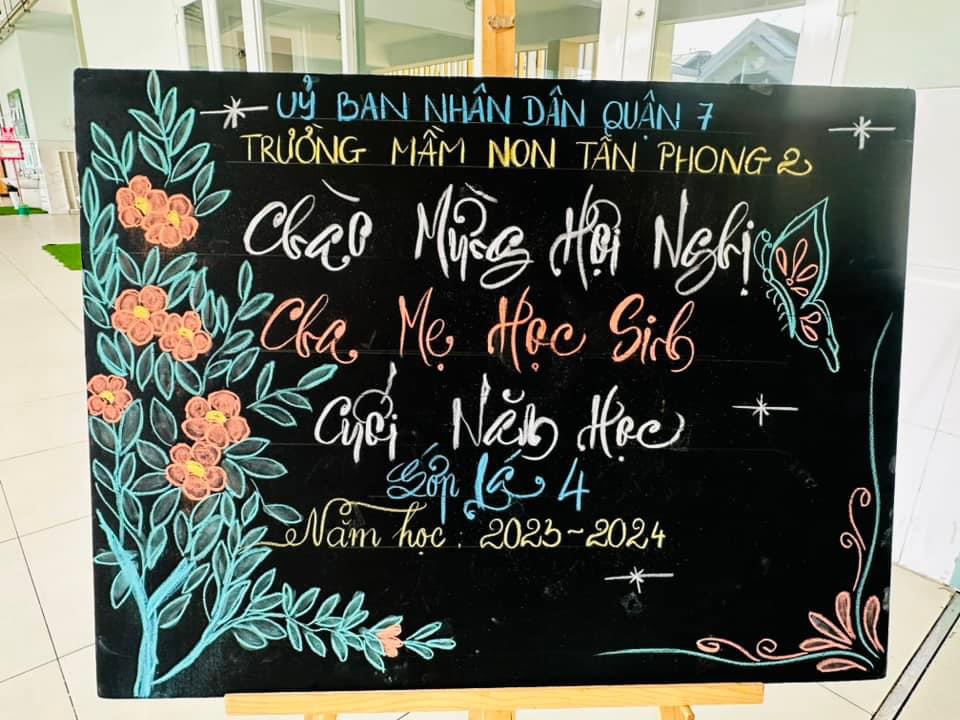 UỶ BAN NHÂN DÂN QUẬN 7
TRƯỜNG MẦM NON TÂN PHONG 2
Chào Mừng Hội Nghị
Cha Mẹ Học Sinh
Cuối Năm Học
Lớp Lá 4
Năm học: 2023~2024